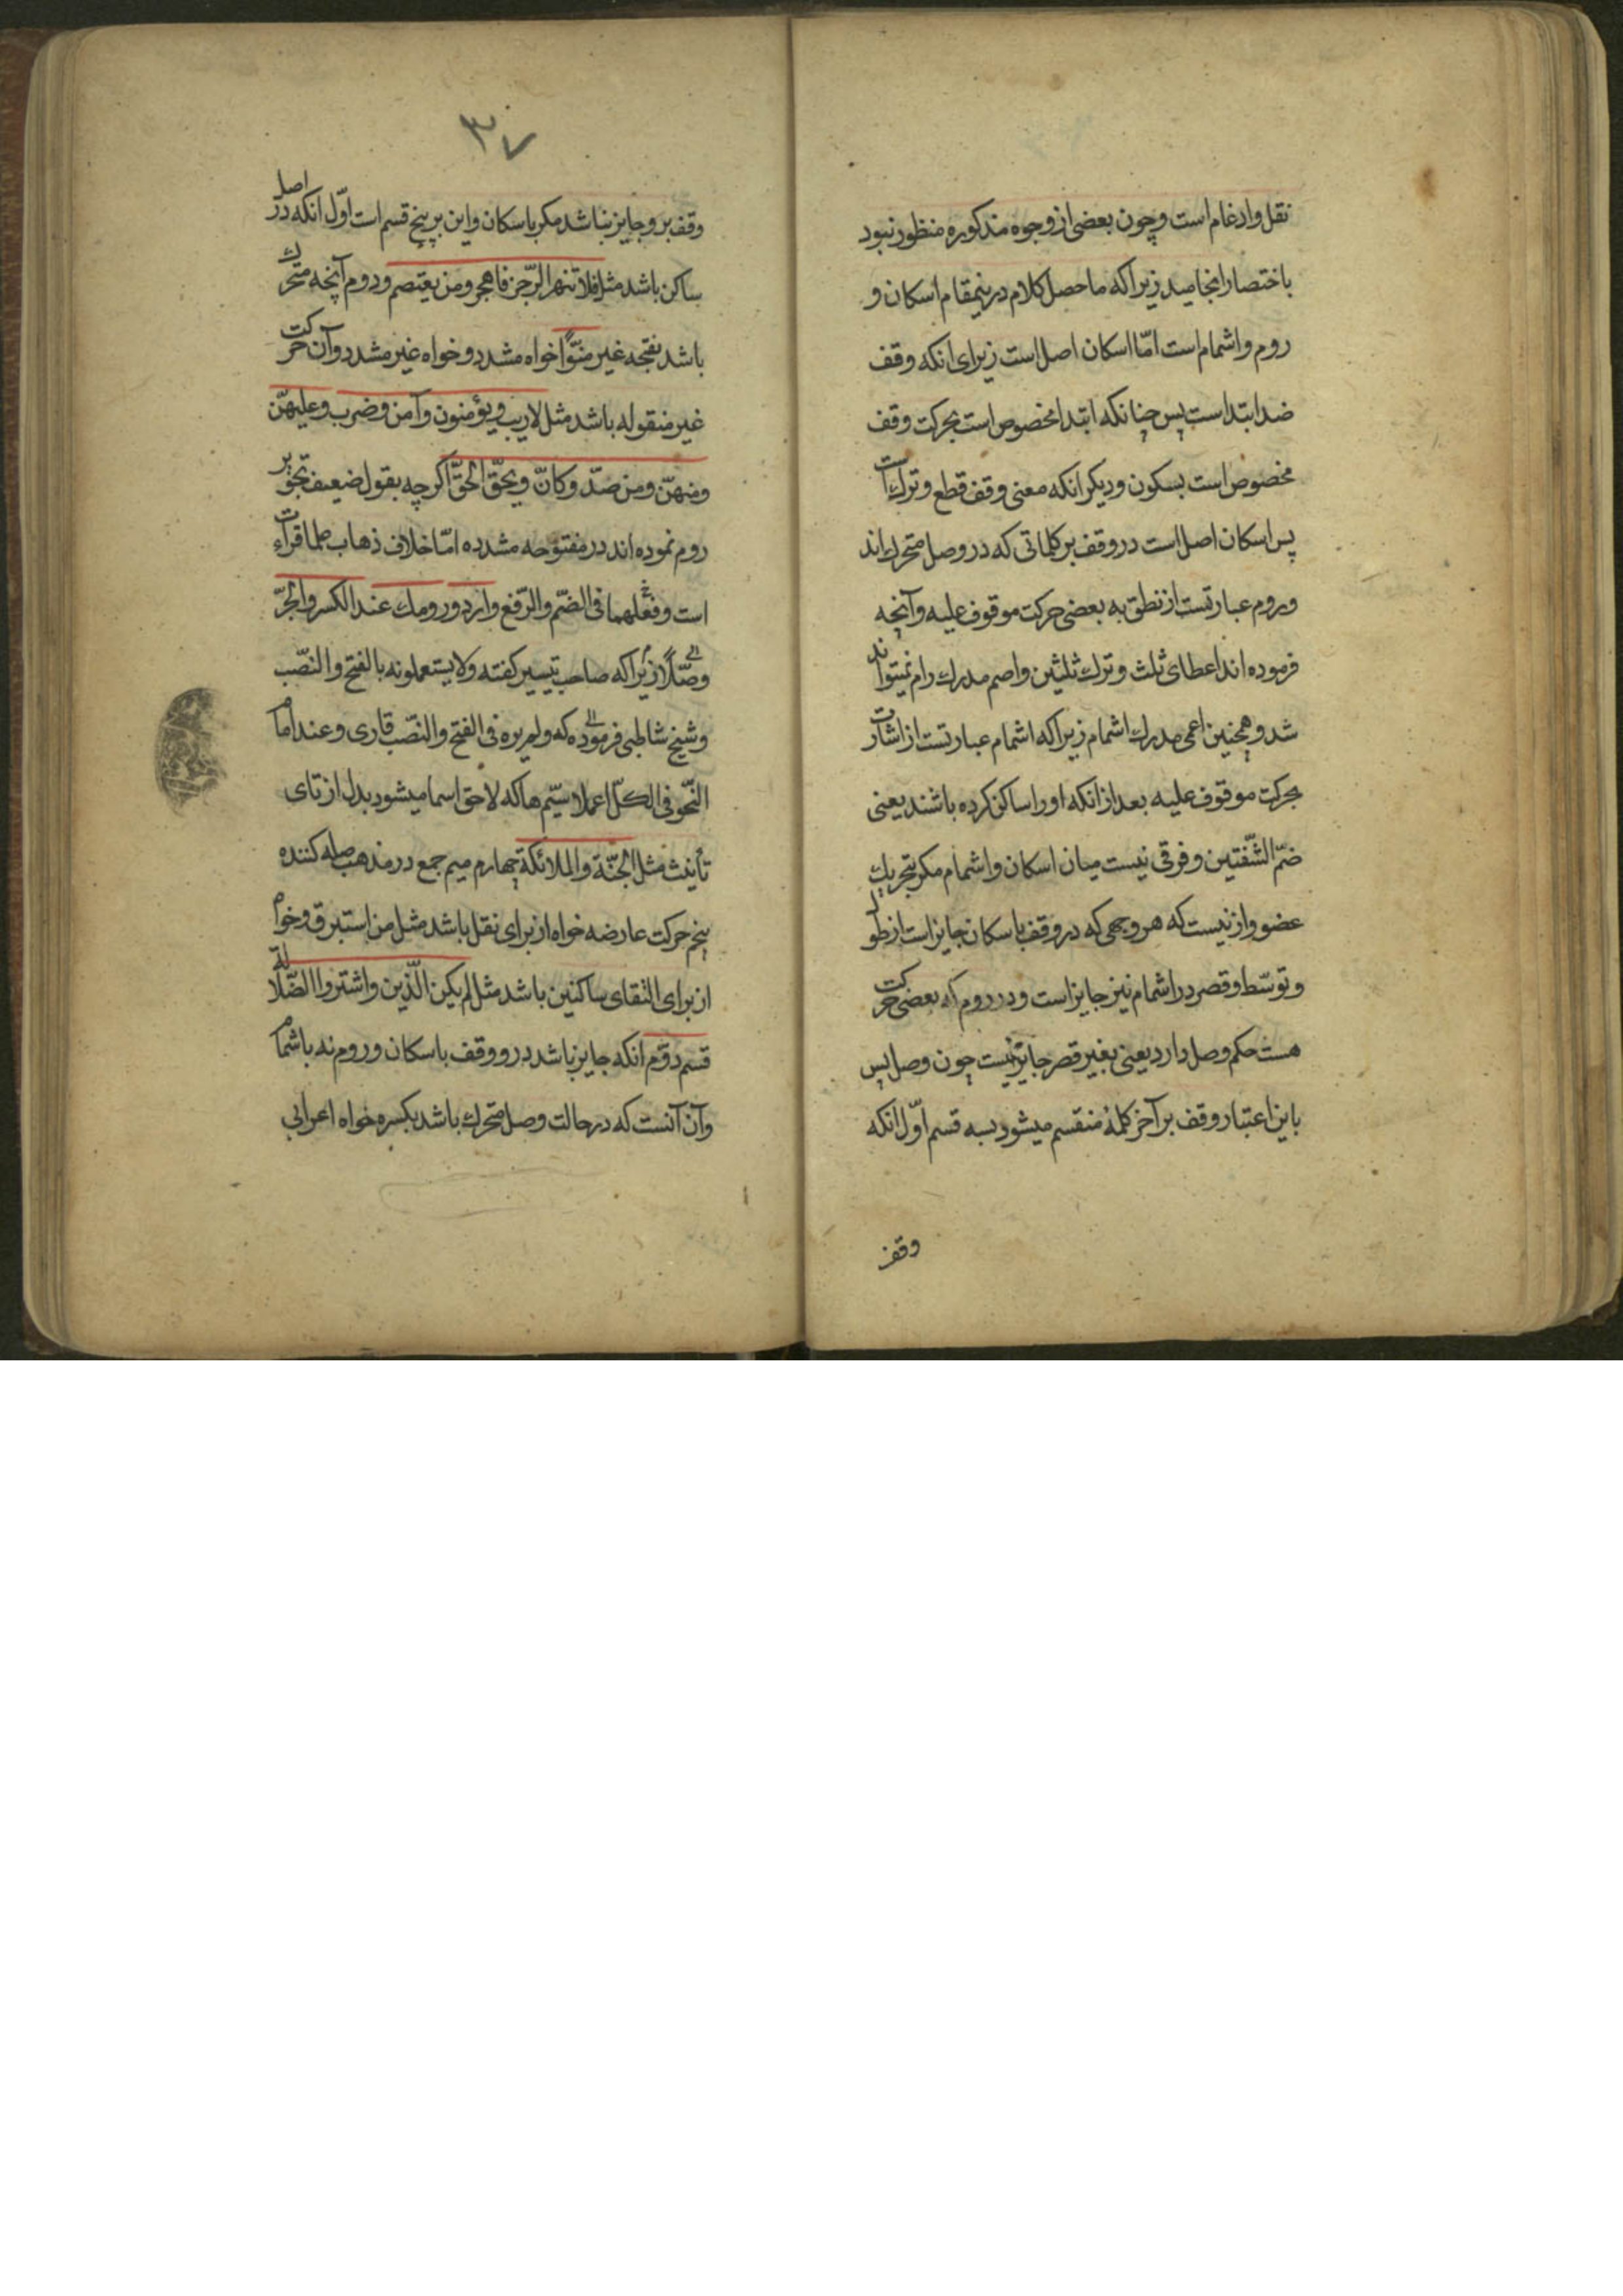 نقل وادغام است وچون بعضی از وجوه مذکوره منظور نبود
باختصار انجامید زیراکه ماحصل کلام درینمقام اسکان و
روم واشمام است امّا اسکان اصل است زیرای انکه وقف
ضد ابتداست پس چنانکه ابتدا مخصوص است بحرکت وقف
مخصوص است بسکون ودیکر انکه معنی وقف قطع وترک است
پس اسکان اصل است در وقف بر کلماتی که در وصل متحرک اند
وروم عبارتست از نطق به بعضی حرکت موقوف علیه وآنچه
فرموده اند اعطای ثلث وترک ثلثین واصم مدرک رام نمیتواند
شد وهمچنین اعمی مدرک اشمام زیراکه اشمام عبارتست از اشارت
بحرکت موقوف علیه بعد از انکه اورا ساکن کرده باشند یعنی
ضمّ الشّفتین وفرقی نیست میان اسکان واشمام مکر بتحریک
عضو واز نیست که هر وجهی که در وقف باسکان جایز است از طول
وتوسّط وقصر در اشمام نیز جایز است ودر روم که بعضی حرکت
هست حکم وصل دارد یعنی بغیر قصر جایز نیست چون وصل پس
باین اعتبار وقف بر آخر کلمهٔ منقسم میشود بسه قسم اوّل انکه
وقف
۳۷
وقف برو جایز نباشد مکر باسکان واین بر پنج قسم است اوّل انکه در اصل
ساکن باشد مثل فلا تنهر الرّجز فاهجر ومن یعتصم ودوم آنچه متحرک
باشد بفتحه غیر منوّناً خواه مشدد وخواه غیر مشدد وآن حرکت
غیر منقوله باشد مثل لاریب ویؤمنون وآمن وضرب وعلیهنّ
ومنهنّ ومن صدّ وکانّ ویحقّ الحقّ اکرچه بقول ضعیف تجویز
روم نموده اند در مفتوحه مشدده امّا خلاف ذهاب علما قراءت
است وفعلهما فی الضّم والرّفع وارد ورومک عند الکسر والجرّ
وصّلا زیراکه صاحب تیسیر کفته ولا یستعملونه بالفتح والنصّب
وشیخ شاطبی فرموده که ولم یره فی الفتح والنصّب قاری وعند امام
النّحو فی الکلّ اعملا سیّم ها که لاحق اسما میشود بدل از تای
تأنیث مثل الجنّة والملائکة چهارم میم جمع در مذهب صله کننده
پنجم حرکت عارضه خواه از برای نقل باشد مثل من استبرق وخواه
از برای التقای ساکنین باشد مثل لم یکن الّذین واشتروا الضّلالة
قسم دوّم انکه جایز باشد درو وقف باسکان وروم نه باشمام
وآن آنست که در حالت وصل متحرک باشد بکسره خواه اعرابی